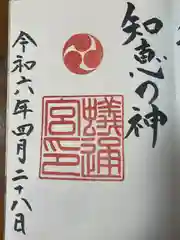 知恵の神
蟻通宮印
令和六年四月二十八日